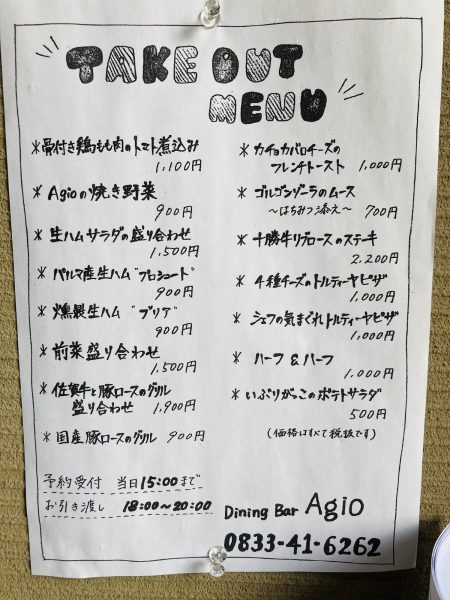 TAKE OUT
MENU
*骨付き鶏もも肉のトマト煮込み
1,100円
*Agioの焼き野菜
900円
*生ハムサラダの盛り合わせ
1,500円
*パルマ産生ハム"プロシュート"
900円
*燻製生ハム"ブリア"
900円
*前菜盛り合わせ
1,500円
*佐賀牛と豚ロースのグリル
盛り合わせ 1,900円
*国産豚ロースのグリル 900円
*カチョカバロチーズの
フレンチトースト 1,000円
*ゴルゴンゾーラのムース
〜はちみつ添え〜 700円
*十勝牛リブロースのステーキ
2,200円
*4種チーズのトルティーヤピザ
1,000円
*シェフの気まぐれトルティーヤピザ
1,000円
*ハーフ&ハーフ
1,000円
*いぶりがっこのポテトサラダ
500円
(価格はすべて税抜です)
予約受付 当日15:00まで
お引き渡し 18:00〜20:00
Dining Bar Agio
0833-41-6262